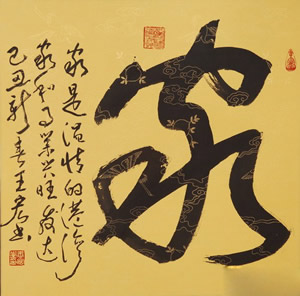 家
家是温情的港湾
家和事业兴旺发达
己丑新春王宏书